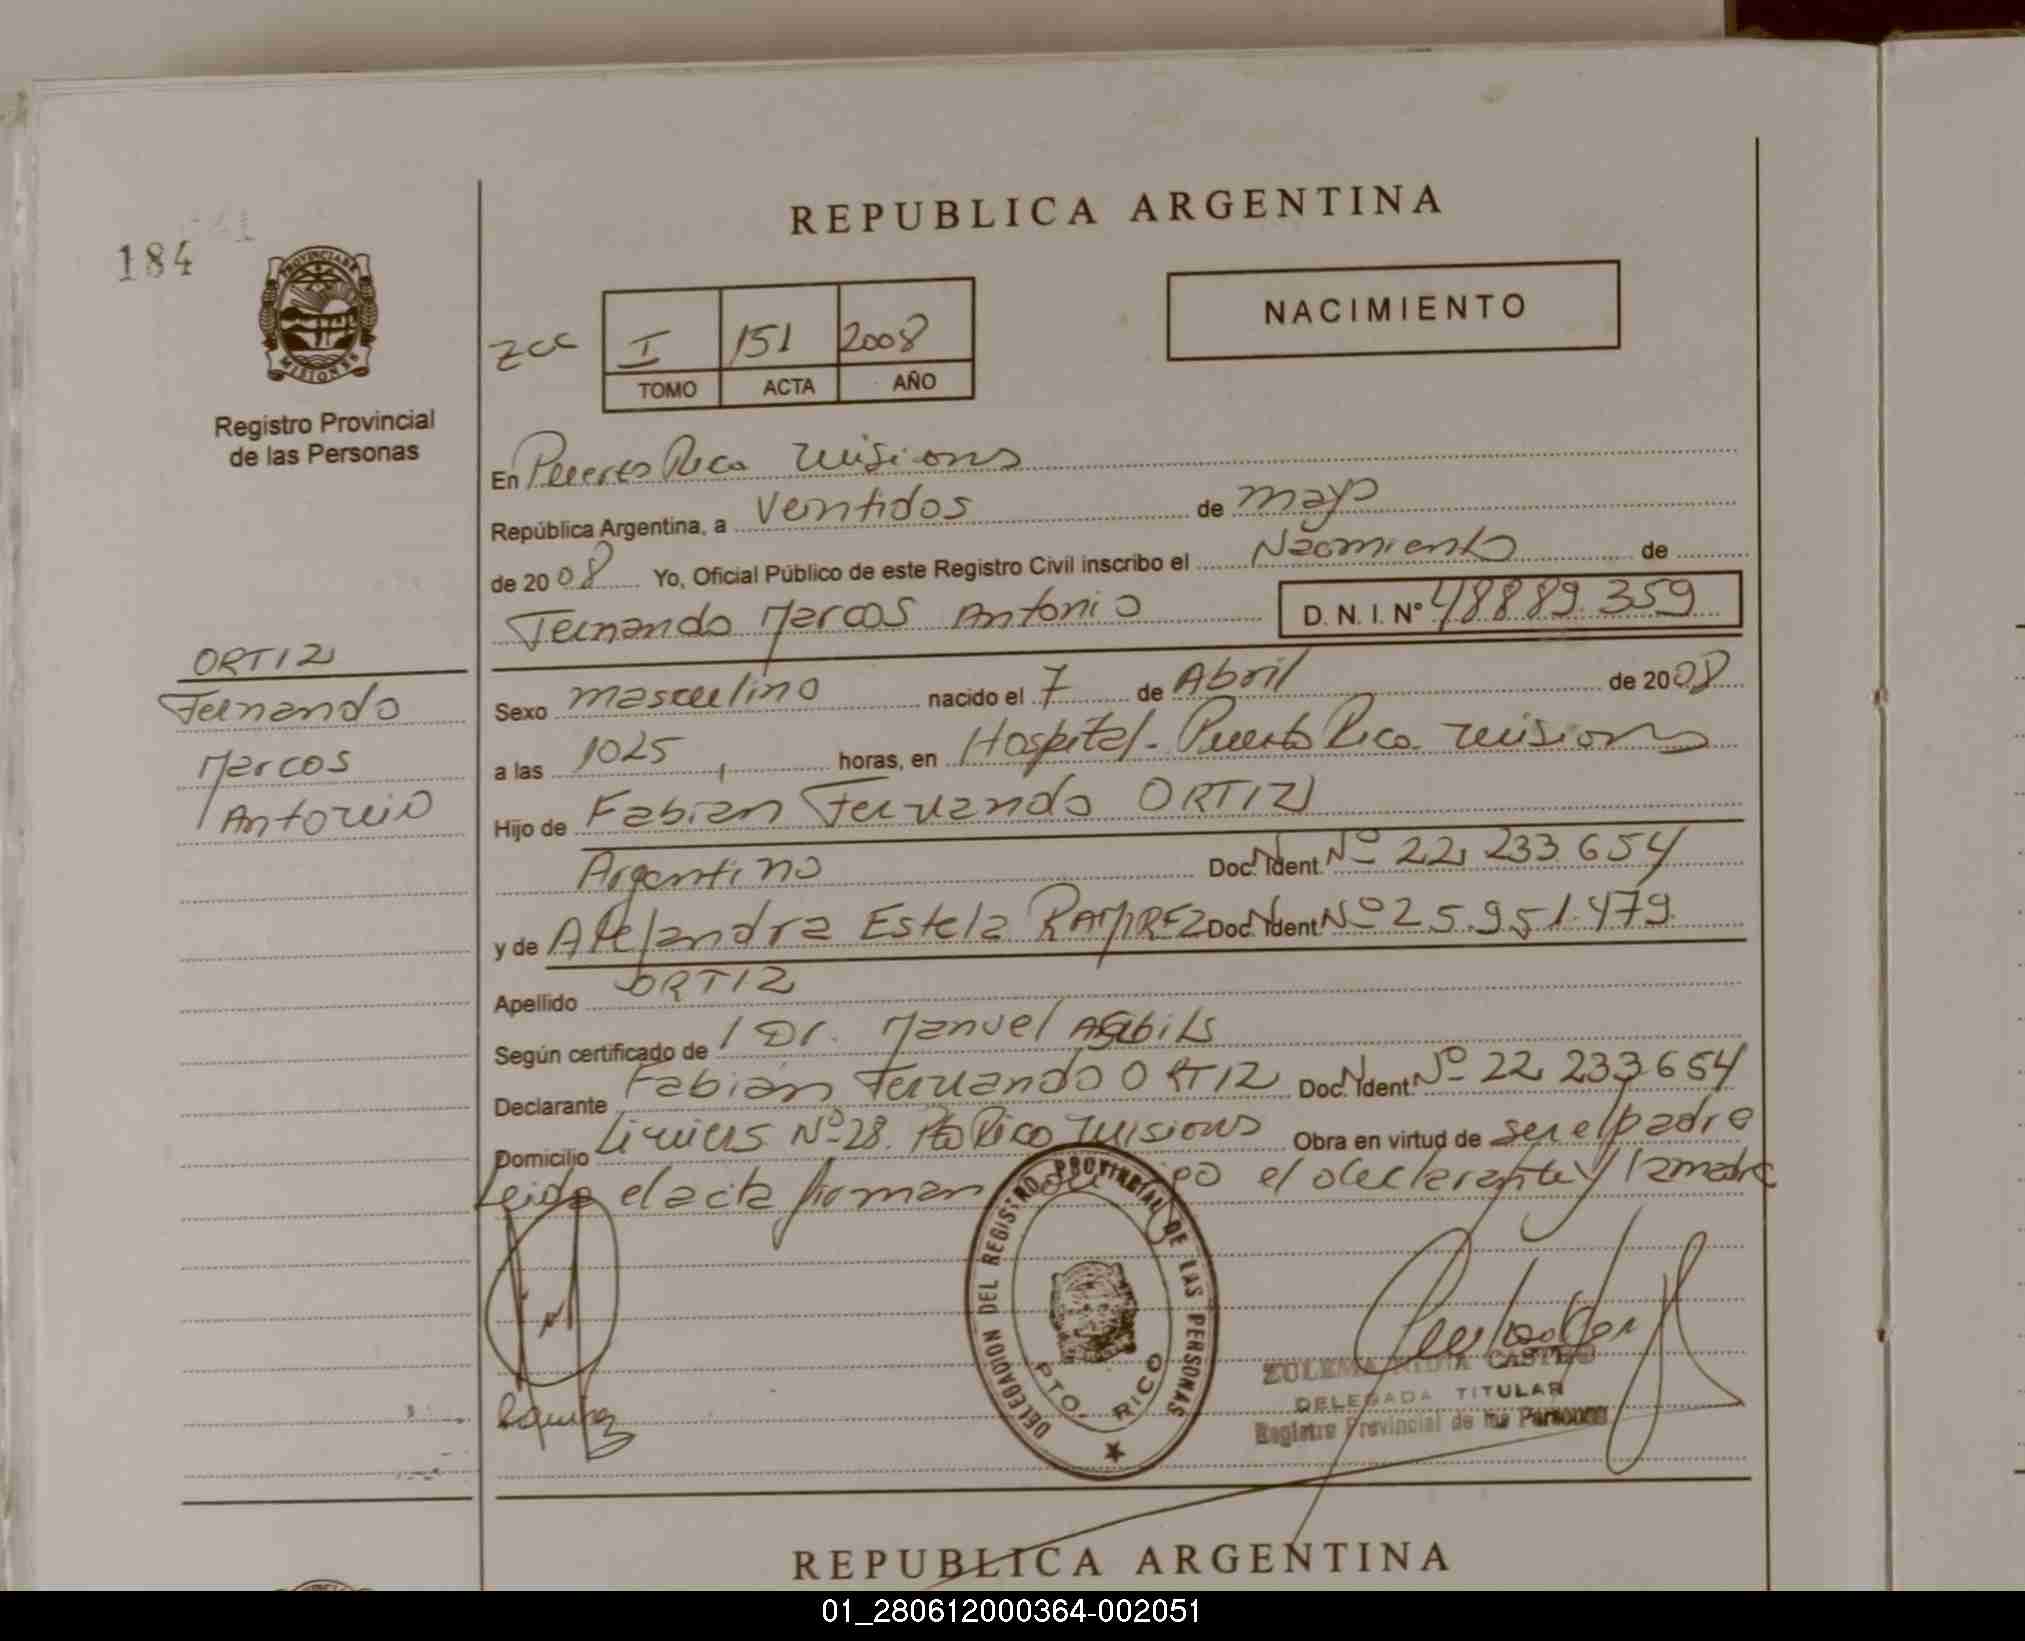 184
PROVINCIA DE
MISIONES
Registro Provincial
de las Personas
ORTIZ
Fernando
Marcos
Antonio
REPUBLICA ARGENTINA
I 151 2008
TOMO ACTA AÑO
NACIMIENTO
En Puerto Rico Misiones
República Argentina, a Veintidos de mayo
de 2008 Yo, Oficial Público de este Registro Civil inscribo el Nacimiento de
Fernando Marcos Antonio D. N. I. Nº 48889.359
Sexo masculino nacido el 7 de Abril de 2008
a las 1025 horas, en Hospital - Puerto Rico Misiones
Hijo de Fabián Fernando ORTIZ
Argentino Doc. Ident. Nº 22 233 654
y de Alejandra Estela RAMIREZ Doc. Ident. Nº 25.951.479
Apellido ORTIZ
Según certificado de Dr. Manuel
Declarante Fabián Fernando ORTIZ Doc. Ident. Nº 22 233654
Domicilio Liniers Nº 28. Pto Rico Misiones Obra en virtud de ser el padre
Leida el acta firman el declarante y la madre
DELEGACION DEL REGISTRO PROVINCIAL DE LAS PERSONAS
PTO. RICO
ZULEMA CASTRO
DELEGADA TITULAR
Registro Provincial de las Personas
REPUBLICA ARGENTINA
01_280612000364-002051